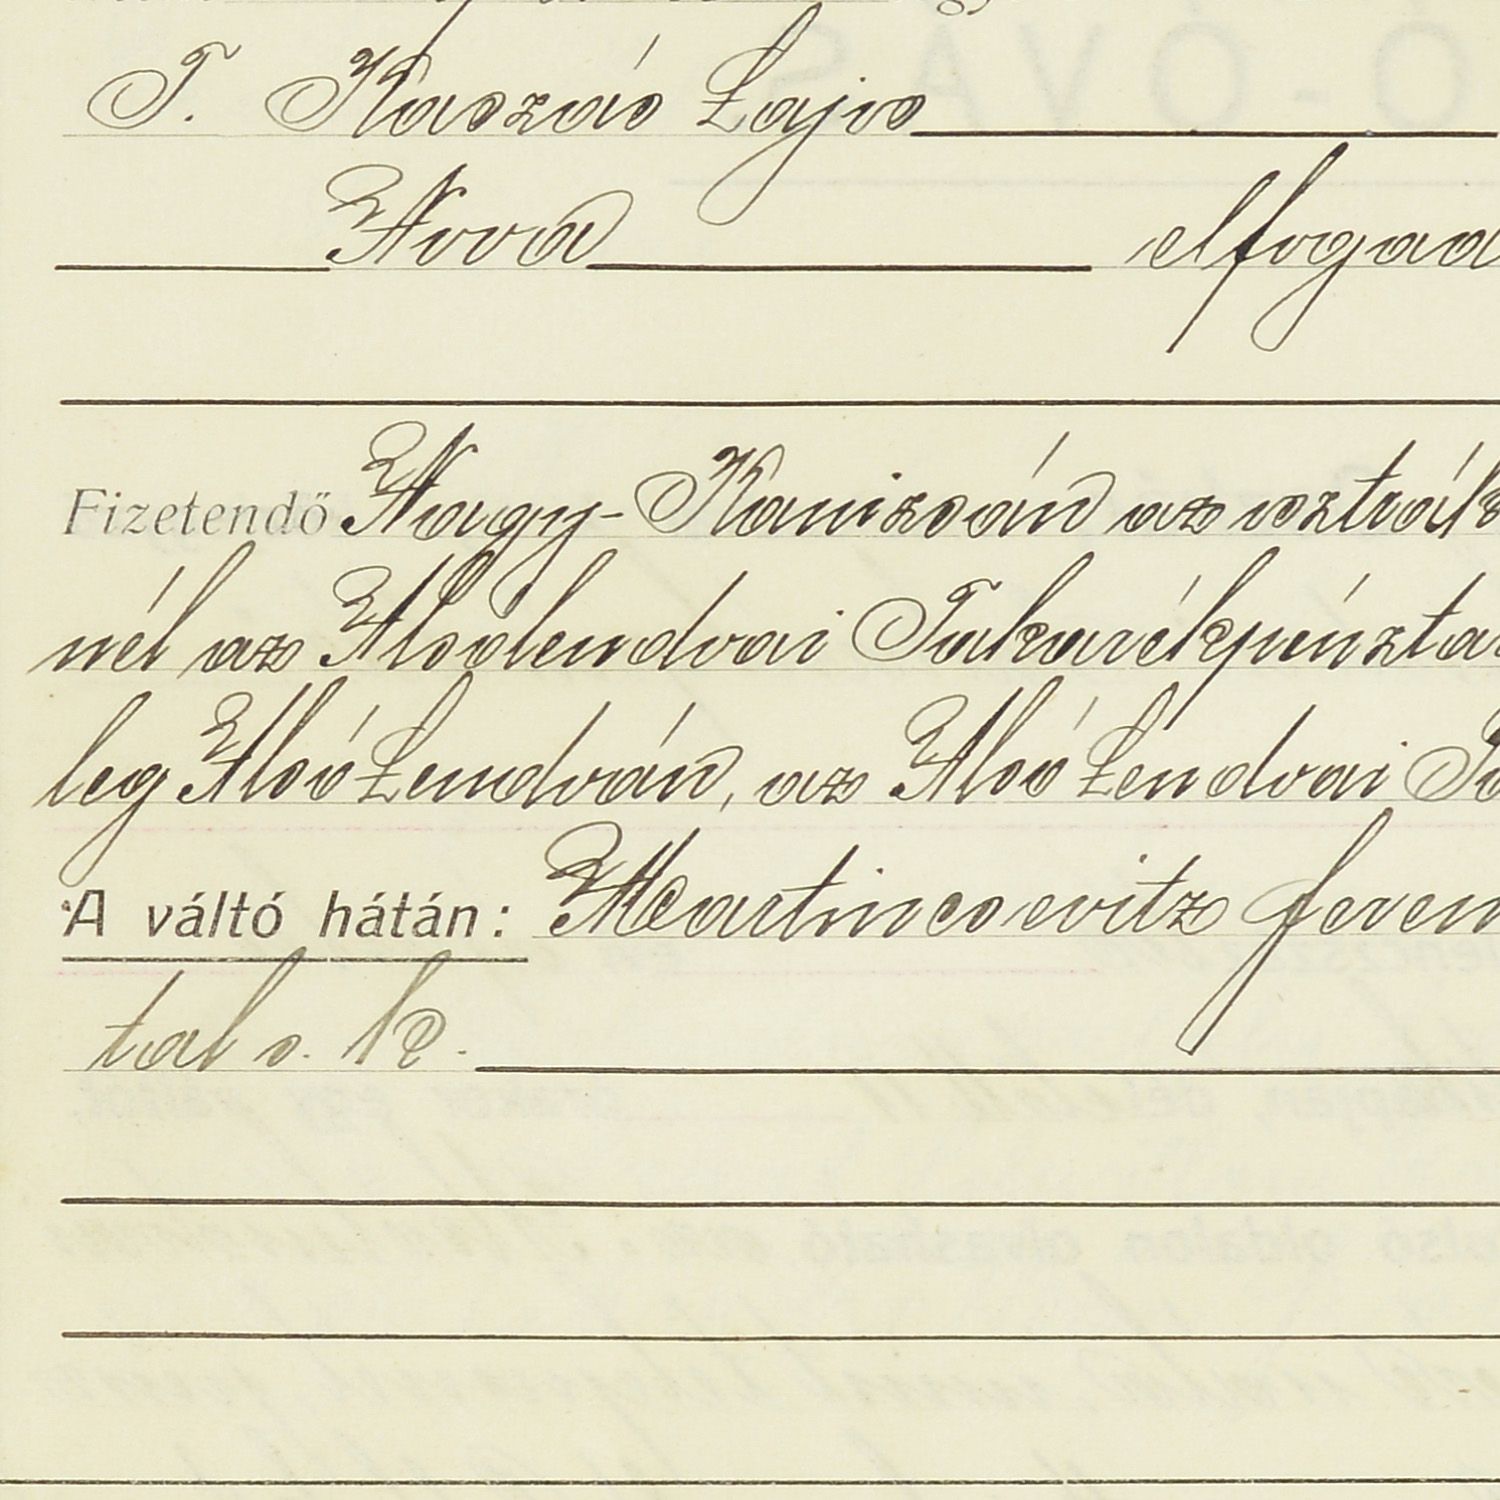 T. Kaszás Lajos
Nova elfogad
Fizetendő Nagy-Kanizsán az osztrák
nél az Alsólendvai Takarékpénztár
leg Alsó Lendván, az Alsó Lendvai Ta
A váltó hátán: Martincsevitz feren
tal s. k.